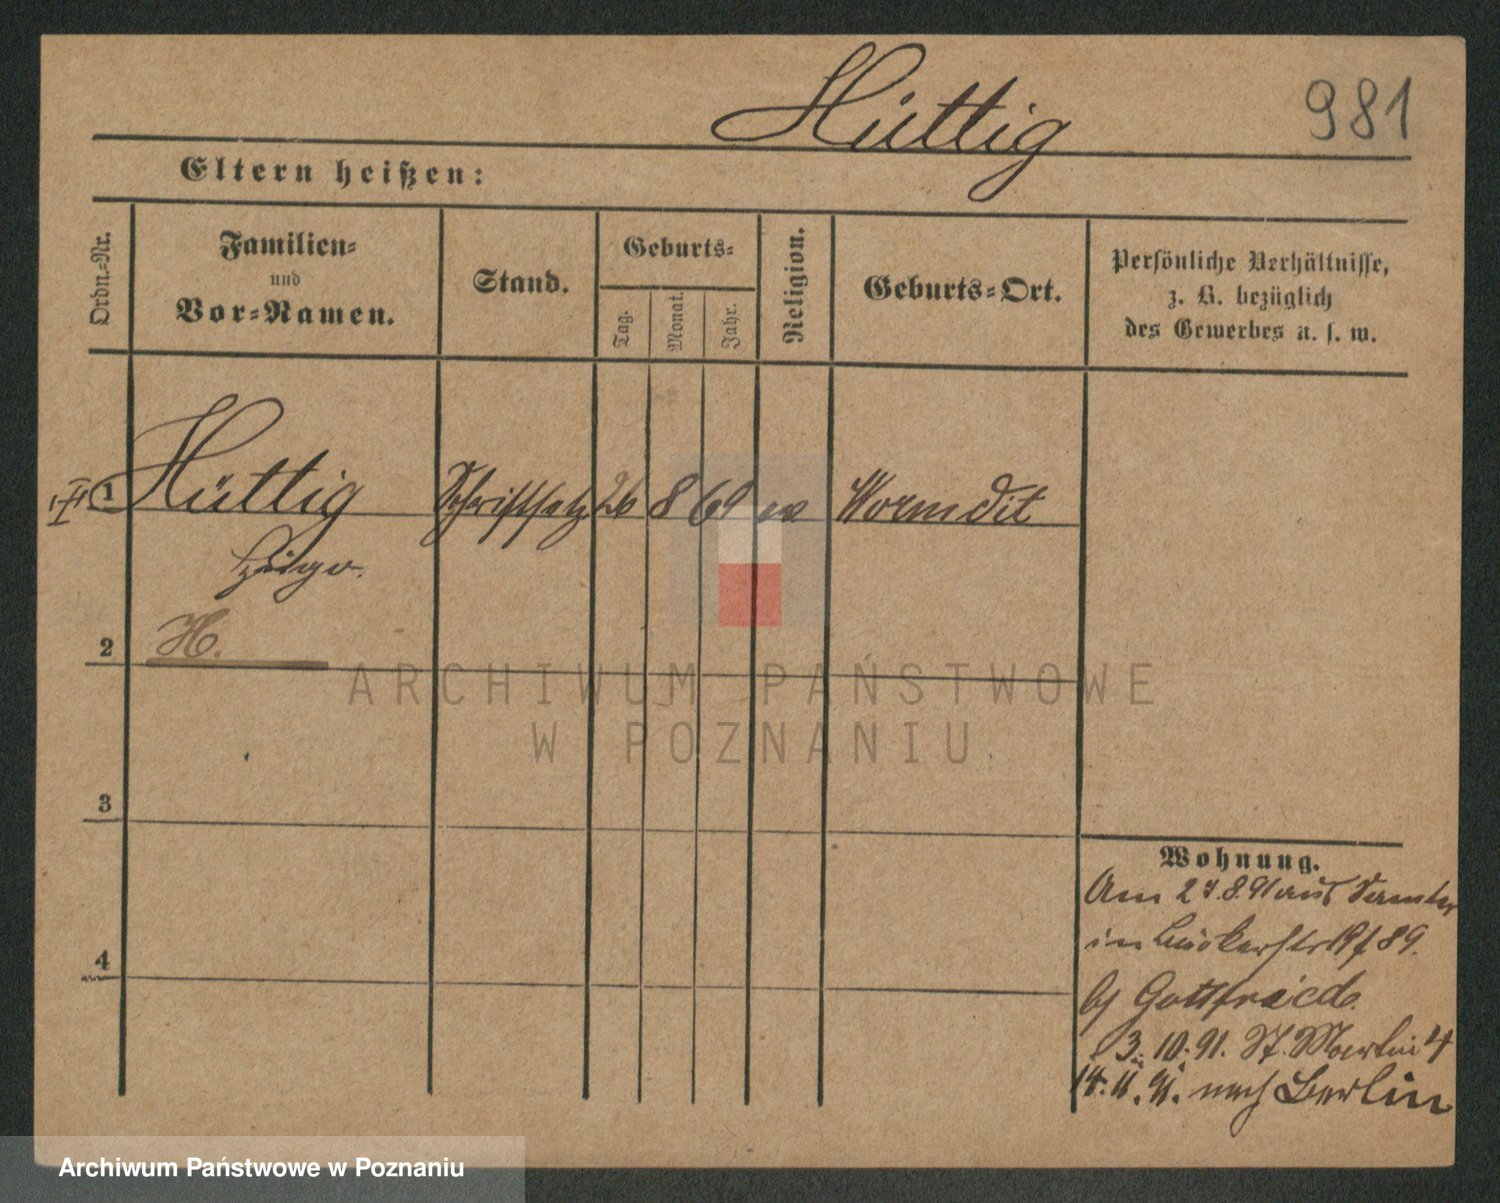 Hüttig
981
Eltern heißen:
Ordn.=Nr.
Familien=
und
Vor=Namen.
Stand.
Geburts=
Tag.
Monat.
Jahr.
Religion.
Geburts=Ort.
Persönliche Verhältnisse,
z. B. bezüglich
des Gewerbes u. s. w.
1 Hüttig Schriftsetz 26 8 69 ev Wormdit
Hugo.
2 H.
3
4
Wohnung.
Am 27.8.91 aus
in 89.
by Gottfried.
3.10.91. St. Martin 4
14.11.91. nach Berlin
ARCHIWUM PAŃSTWOWE
W POZNANIU
Archiwum Państwowe w Poznaniu